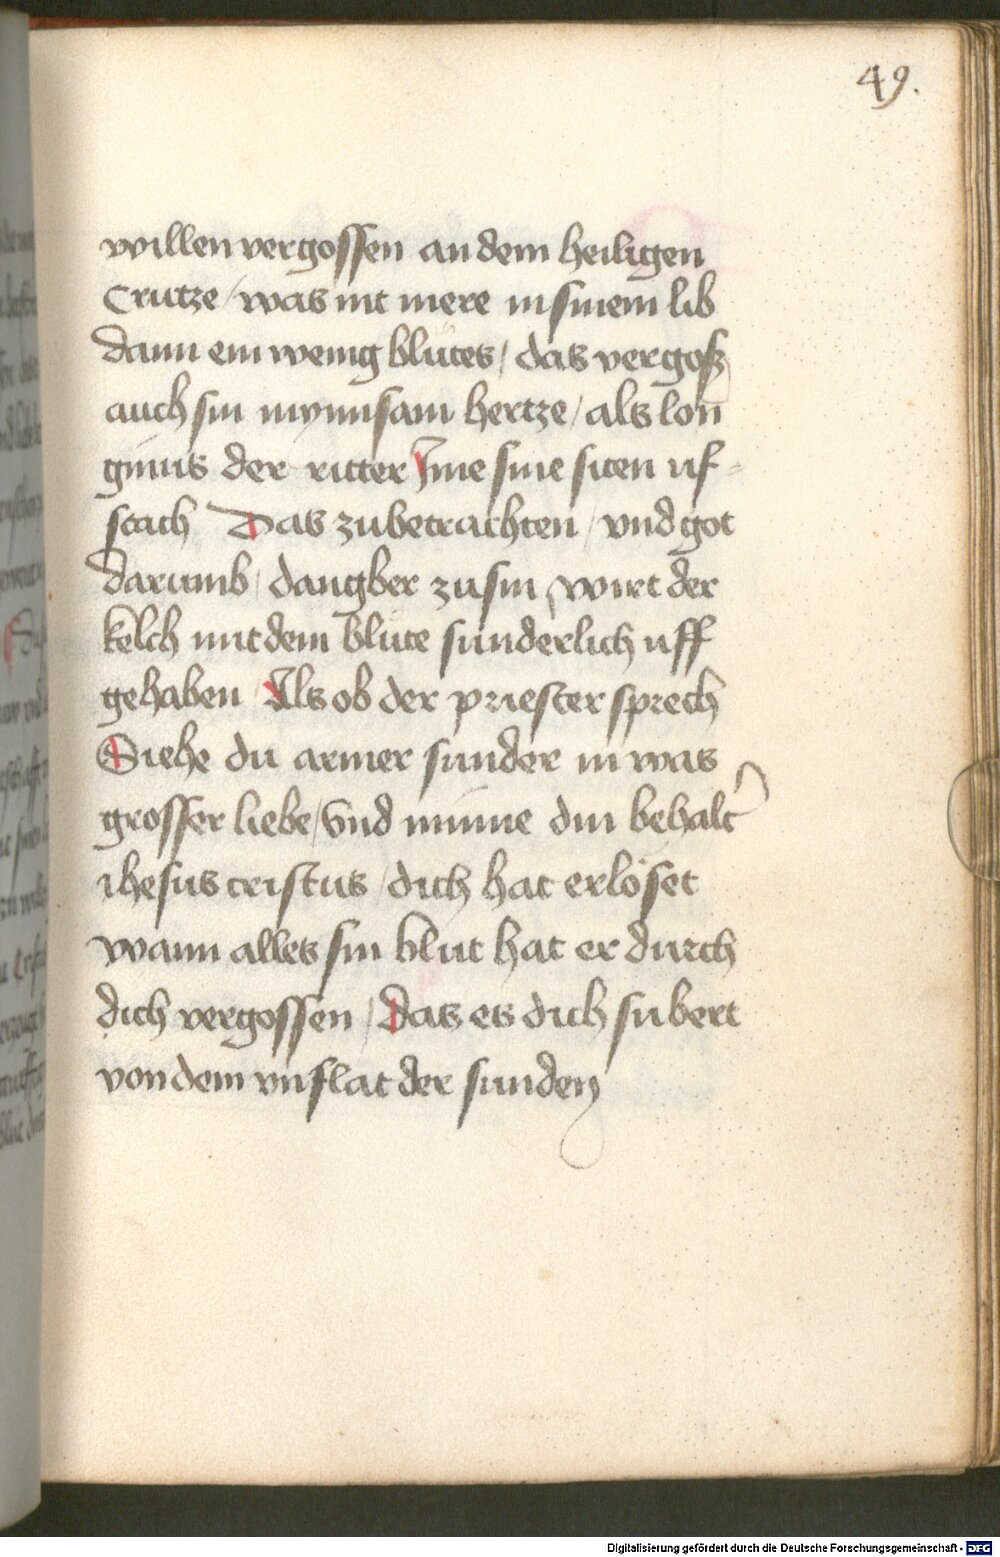 49.
willen vergossen an dem heiligen
Crutze / was nit mere in sinem lib
dann ein wenig blutes / das vergosz
auch sin mynnsam hertze / als lon
ginus der ritter Jme sine siten uf-
stach Das zubetrachten / vnd got
darumb / dangber zusin / wirt der
kelch mit dem blute sunderlich uff
gehaben Als ob der priester sprech
Siehe du armer sunder in was
grosser liebe / Vnd minne din behalt͛
ihesus cristus / dich hat erlöset
wann alles sin blut hat er durch
dich vergossen / Das es dich subert
von dem vnflat der sunden
Digitalisierung gefördert durch die Deutsche Forschungsgemeinschaft - DFG